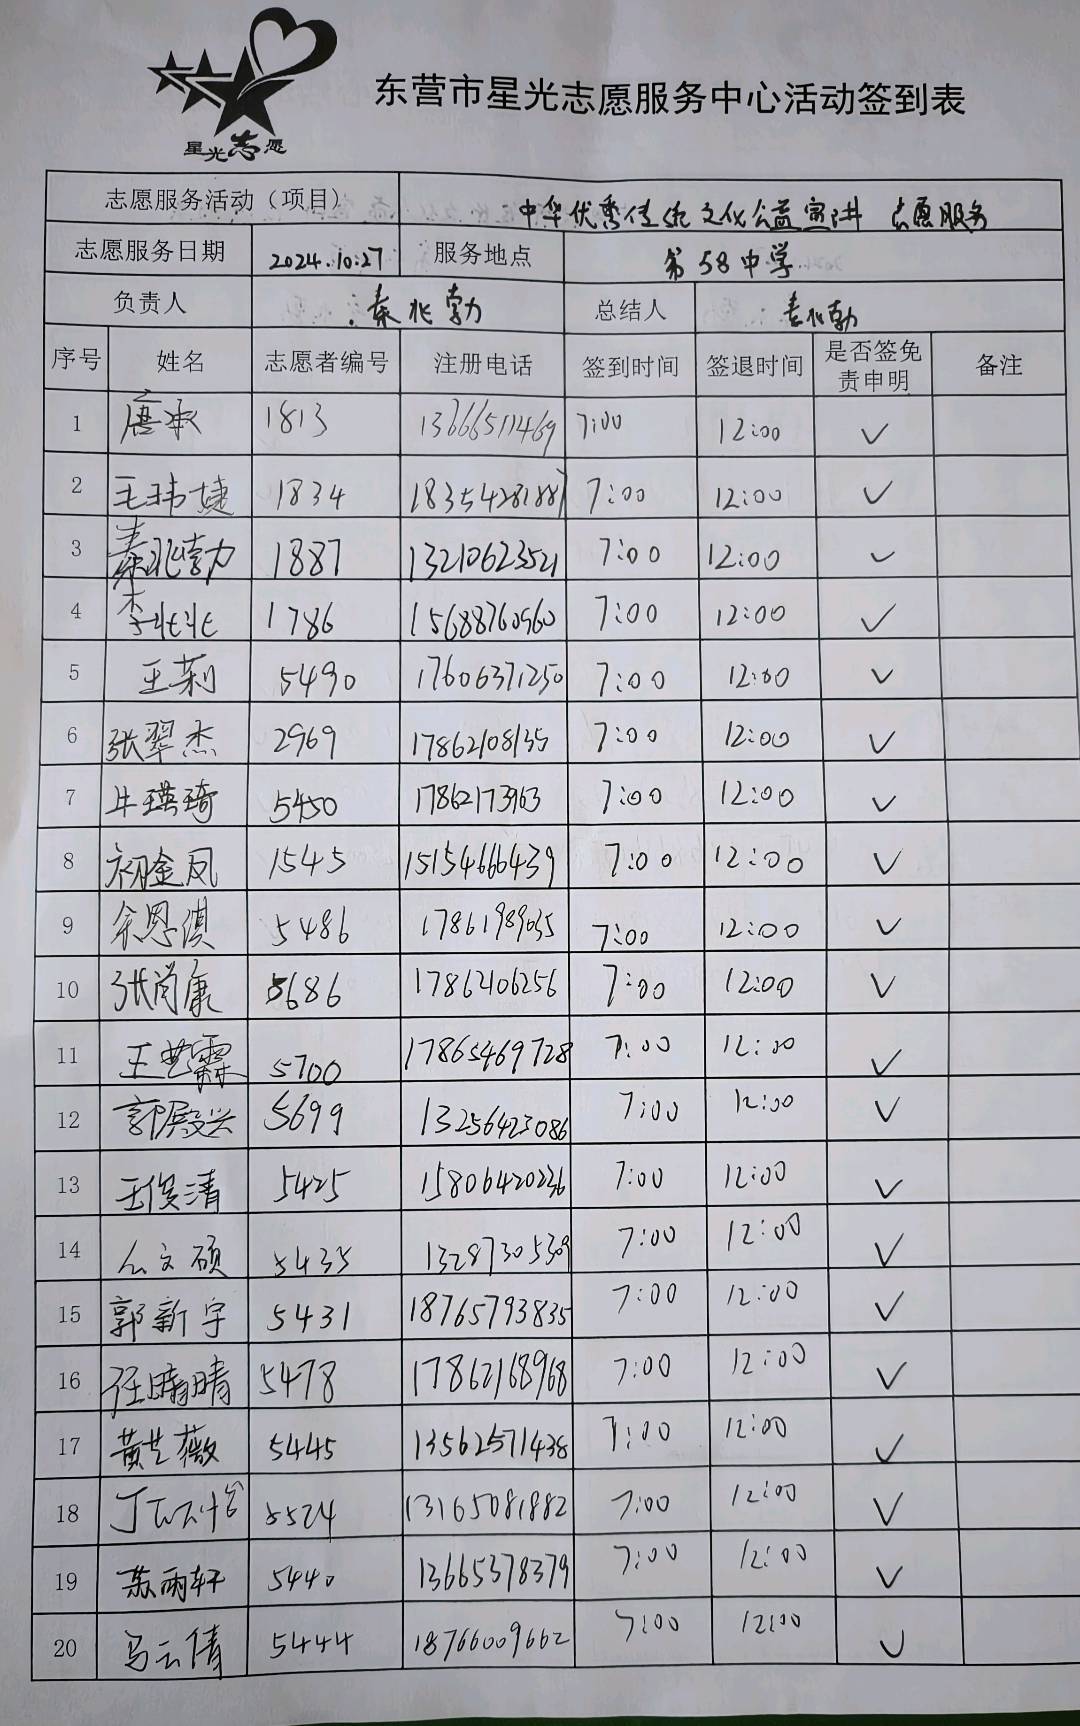 星光志愿
东营市星光志愿服务中心活动签到表
志愿服务活动（项目） 中华优秀传统文化公益宣讲 志愿服务
志愿服务日期 2024.10.27 服务地点 第58中学
负责人 秦兆勃 总结人 秦兆勃
序号 姓名 志愿者编号 注册电话 签到时间 签退时间 是否签免责申明 备注
1 唐承 1813 13666511469 7:00 12:00 ✓
2 王玮婕 1834 18354281887 7:00 12:00 ✓
3 秦兆勃 1887 13210623521 7:00 12:00 ✓
4 李北北 1786 15688760560 7:00 12:00 ✓
5 王莉 5490 17606371250 7:00 12:00 ✓
6 张翠杰 2969 17862108135 7:00 12:00 ✓
7 牛瑛琦 5450 17862173963 7:00 12:00 ✓
8 初金凤 1545 15154666439 7:00 12:00 ✓
9 余恩淇 5486 17861989035 7:00 12:00 ✓
10 张尚康 5686 17862106256 7:00 12:00 ✓
11 王艺霖 5700 17865469728 7:00 12:00 ✓
12 郭殿兴 5699 13256423086 7:00 12:00 ✓
13 王俊清 5425 15806420236 7:00 12:00 ✓
14 公文硕 5435 13287305309 7:00 12:00 ✓
15 郭新宇 5431 18765793835 7:00 12:00 ✓
16 5478 17862168968 7:00 12:00 ✓
17 黄艺薇 5445 13562571438 7:00 12:00 ✓
18 5524 13165081882 7:00 12:00 ✓
19 雨轩 5440 13665378379 7:00 12:00 ✓
20 马云倩 5444 18766009662 7:00 12:00 ✓